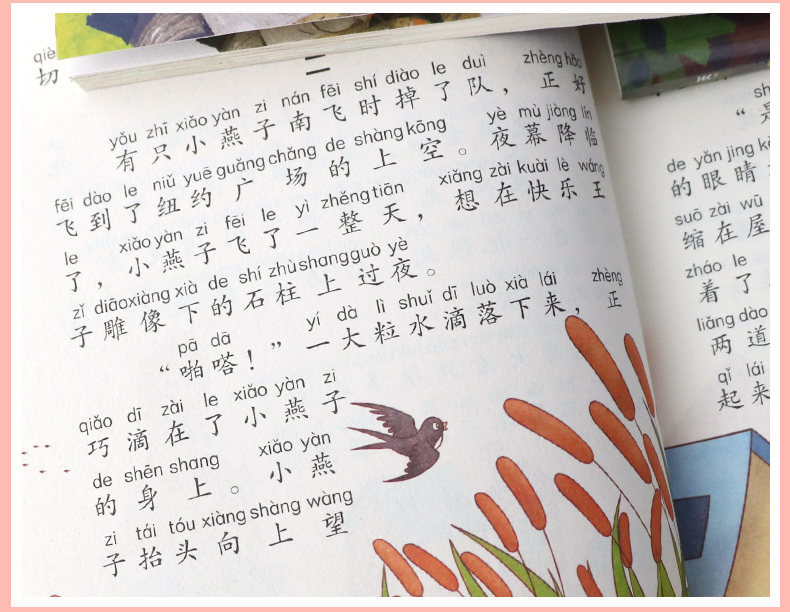 qiè
切
yǒu zhī xiǎo yàn zi nán fēi shí diào le duì zhèng hǎo
有只小燕子南飞时掉了队，正好
fēi dào le niǔ yuē guǎng chǎng de shàng kōng yè mù jiàng lín
飞到了纽约广场的上空。夜幕降临
le xiǎo yàn zi fēi le yì zhěng tiān xiǎng zài kuài lè wáng
了，小燕子飞了一整天，想在快乐王
zǐ diāo xiàng xià de shí zhù shang guò yè
子雕像下的石柱上过夜。
pā dā yí dà lì shuǐ dī luò xià lái zhèng
“啪嗒！”一大粒水滴落下来，正
qiǎo dī zài le xiǎo yàn zi
巧滴在了小燕子
de shēn shang xiǎo yàn
的身上。小燕
zi tái tóu xiàng shàng wàng
子抬头向上望
“是
de yǎn jing
的眼睛
suō zài wū
缩在屋
zháo le
着了
liǎng dào
两道
qǐ lái
起来